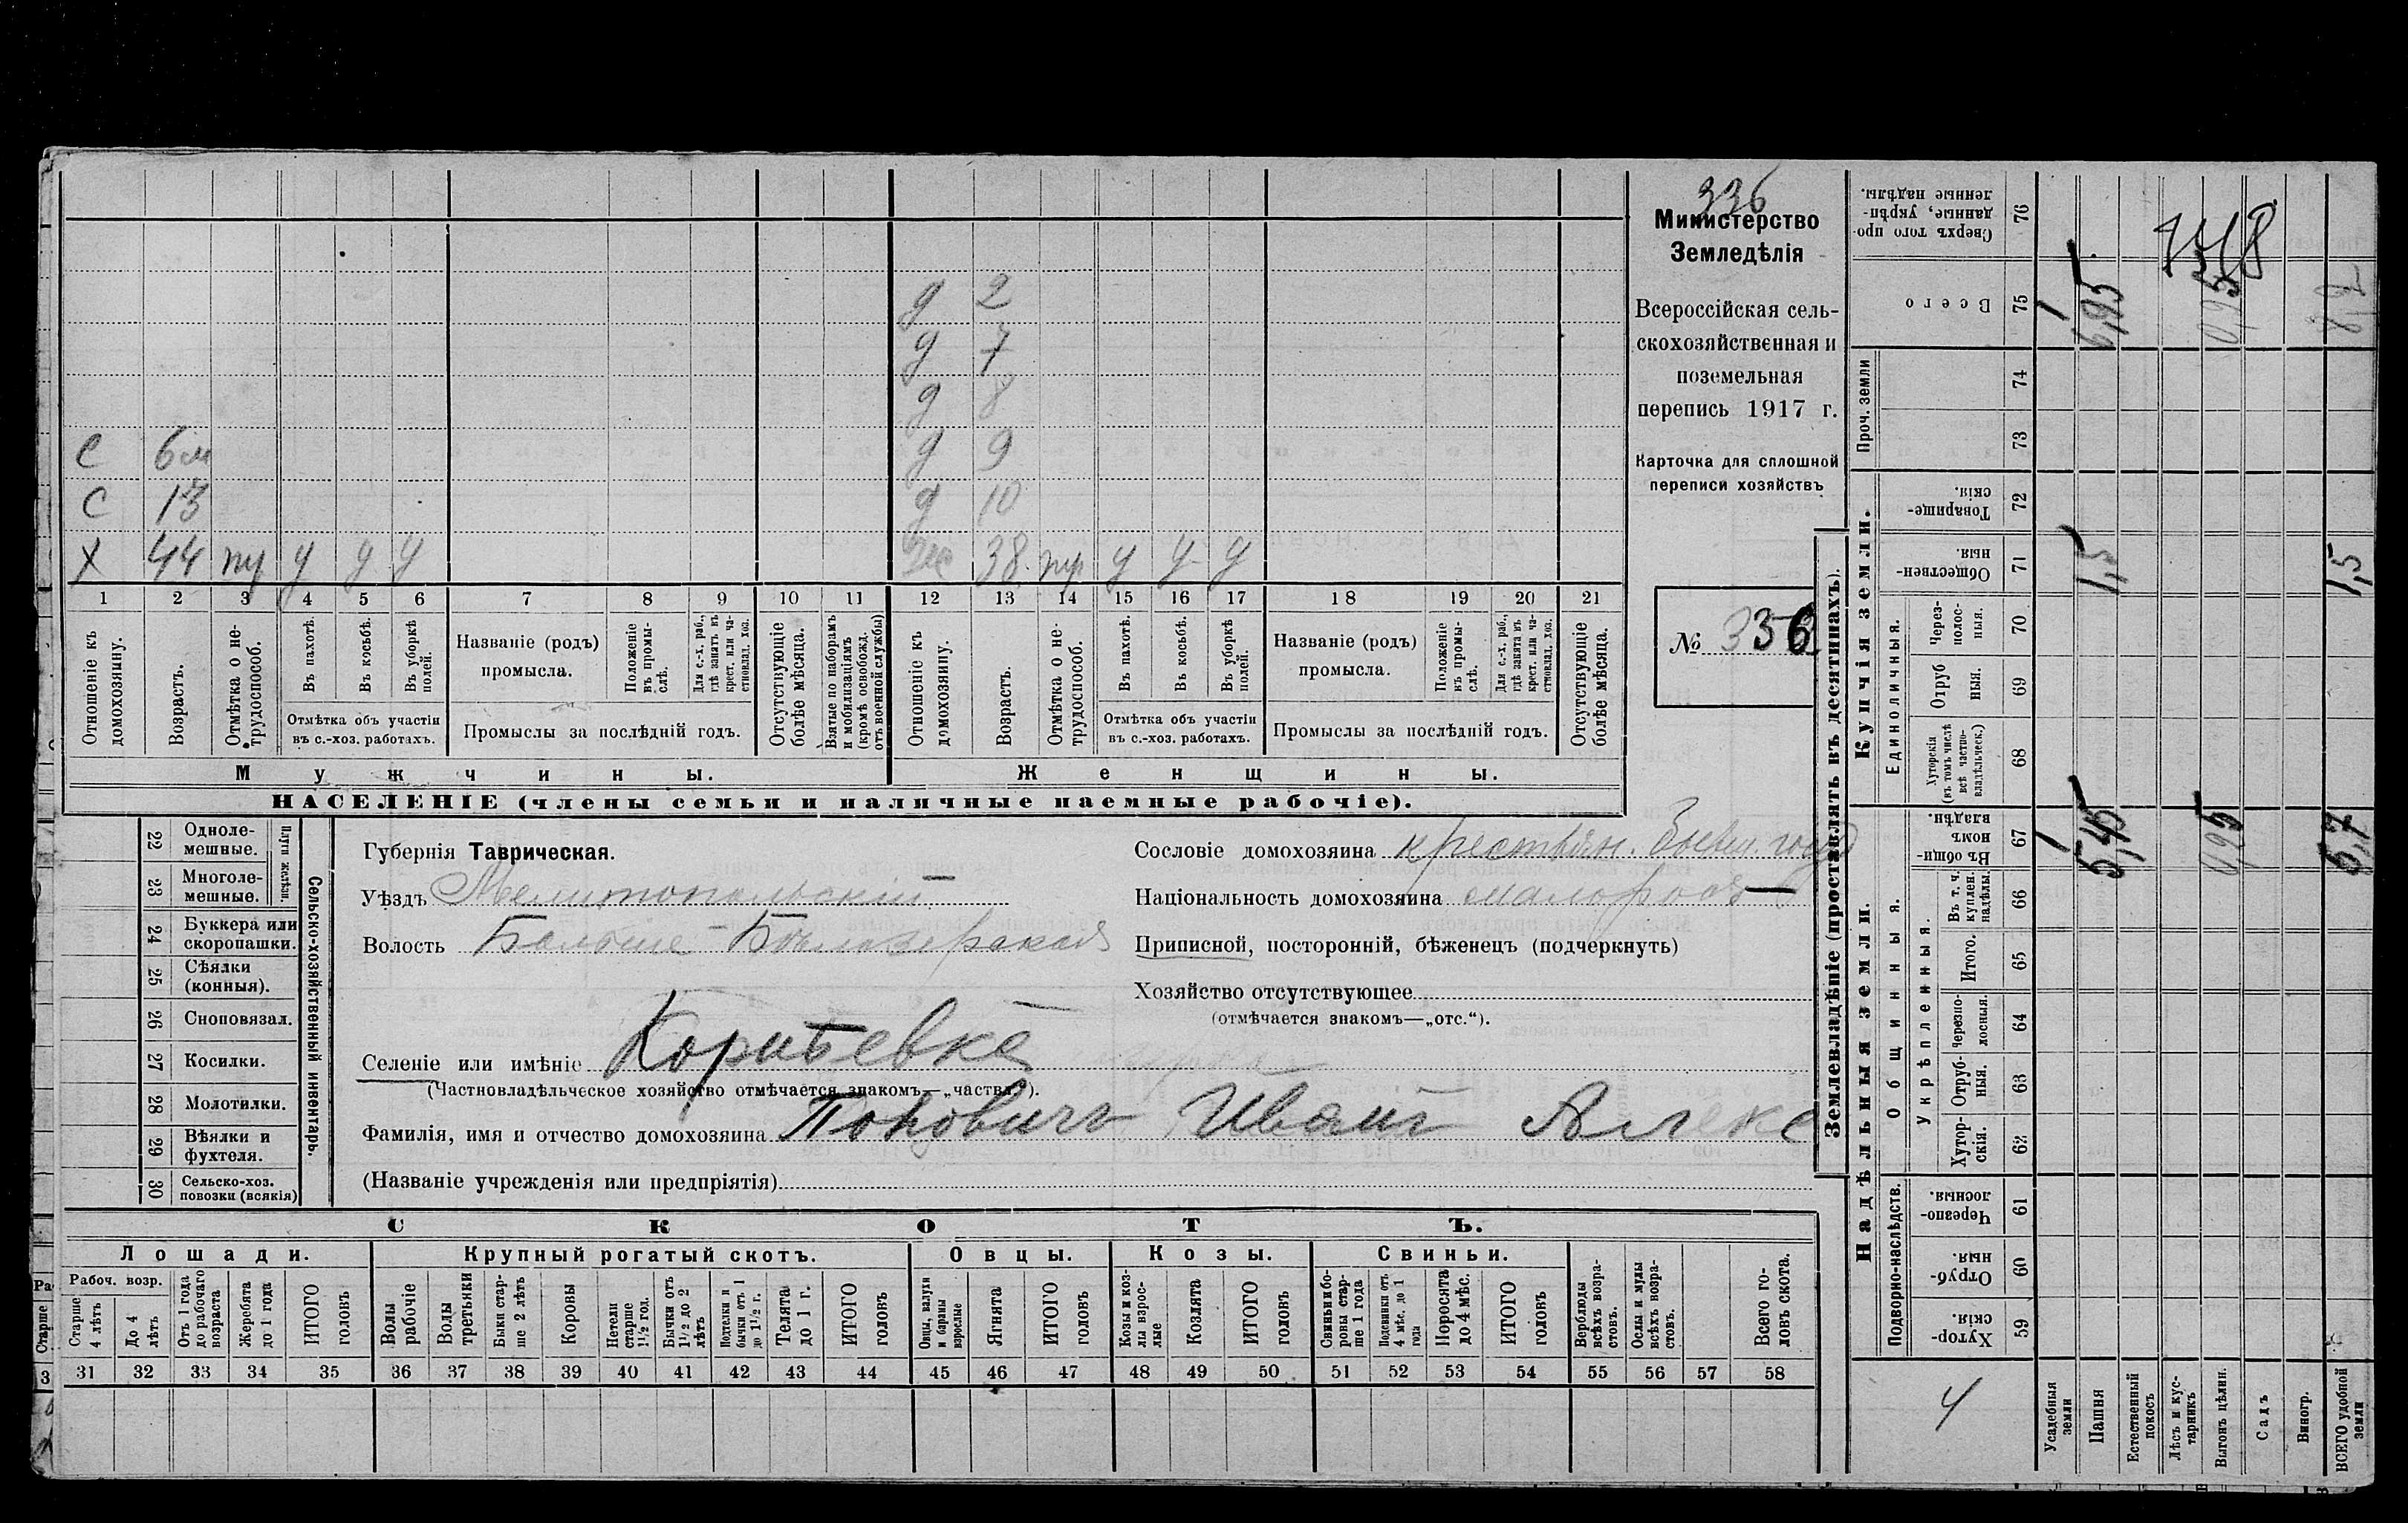 336
Министерство
Земледѣлія
Всероссійская сель-
скохозяйственная и
поземельная
перепись 1917 г.
Карточка для сплошной
переписи хозяйствъ
№ 336
д 2
д 7
д 8
д 9
д 10
с 6 м
с 13
х 44 пр у у у
же 38 пр у у у
1 2 3 4 5 6 7 8 9 10 11 12 13 14 15 16 17 18 19 20 21
Отношеніе къ домохозяину.
Возрастъ.
Отмѣтка о не-трудоспособ.
Въ пахотѣ.
Въ косьбѣ.
Въ уборкѣ полей.
Отмѣтка объ участіи
въ с.-хоз. работахъ.
Названіе (родъ)
промысла.
Положеніе въ промы-слѣ.
Для с.-х. раб., гдѣ занятъ въ крест. или ча-стновлад. хоз.
Промыслы за послѣдній годъ.
Отсутствующіе болѣе мѣсяца.
Взятые по наборамъ и мобилизаціямъ (кромѣ освобожд. отъ военной службы)
Отношеніе къ домохозяину.
Возрастъ.
Отмѣтка о не-трудоспособ.
Въ пахотѣ.
Въ косьбѣ.
Въ уборкѣ полей.
Отмѣтка объ участіи
въ с.-хоз. работахъ.
Названіе (родъ)
промысла.
Положеніе въ промы-слѣ.
Для с.-х. раб., гдѣ занятъ въ крест. или ча-стновлад. хоз.
Промыслы за послѣдній годъ.
Отсутствующіе болѣе мѣсяца.
Мужчины.
Женщины.
НАСЕЛЕНІЕ (члены семьи и наличные наемные рабочіе).
Сельско-хозяйственный инвентарь.
Плуги желѣзн.
22 Одноле-мешные.
23 Многоле-мешные.
24 Буккера или скоропашки.
25 Сѣялки (конныя).
26 Сноповязал.
27 Косилки.
28 Молотилки.
29 Вѣялки и фухтеля.
30 Сельско-хоз. повозки (всякія)
Губернія Таврическая.
Уѣздъ Мелитопольскій
Волость Больше-Бѣлозерская
Селеніе или имѣніе
(Частновладѣльческое хозяйство отмѣчается знакомъ—„частвл.“).
Фамилія, имя и отчество домохозяина Попович Иван Алекс
(Названіе учрежденія или предпріятія)
Сословіе домохозяина крестьян. бывш. госуд
Національность домохозяина малоросс
Приписной, посторонній, бѣженецъ (подчеркнуть)
Хозяйство отсутствующее
(отмѣчается знакомъ—„отс.“).
СКОТЪ.
Лошади.
Крупный рогатый скотъ.
Овцы.
Козы.
Свиньи.
Рабоч. возр.
Старше 4 лѣтъ
До 4 лѣтъ
Отъ 1 года до рабочаго возраста
Жеребята до 1 года
ИТОГО головъ
Волы рабочіе
Волы третьяки
Быки стар-ше 2 лѣтъ
Коровы
Нетели старше 1½ год.
Бычки отъ 1½ до 2 лѣтъ
Подтелки и бычки отъ 1 до 1½ г.
Телята до 1 г.
ИТОГО головъ
Овцы, валухи и бараны взрослые
Ягнята
ИТОГО головъ
Козы и коз-лы взрос-лые
Козлята
ИТОГО головъ
Свиньи и бо-ровы стар-ше 1 года
Подсвинки отъ 4 мѣс. до 1 года
Поросята до 4 мѣс.
ИТОГО головъ
Верблюды всѣхъ возра-стовъ.
Ослы и мулы всѣхъ возра-стовъ.
Всего го-ловъ скота.
31 32 33 34 35 36 37 38 39 40 41 42 43 44 45 46 47 48 49 50 51 52 53 54 55 56 57 58
Землевладѣніе (проставлять въ десятинахъ).
Надѣльныя земли.
Купчія земли.
Проч. земли
Подворно-наслѣдств.
Общинныя.
Укрѣпленныя.
Единоличныя.
Сверхъ того про-данные, укрѣп-ленные надѣлы. 76
Всего 75 1 6,95 0,25 8,2
74
73
Товарище-скія. 72
Обществен-ныя. 71 1,5 1,5
Через-полос-ныя. 70
Отруб-ныя. 69
Хуторскія (въ томъ числѣ всѣ частно-владѣльческ.) 68
Въ общи-номъ владѣн. 67 1 5,45 0,25 6,7
Въ т. ч. куплен. надѣлы. 66
Итого. 65
Черезпо-лосныя. 64
Отруб-ныя. 63
Хутор-скія. 62
Черезпо-лосныя. 61
Отруб-ныя. 60
Хутор-скія. 59
4
Усадебныя земли
Пашня
Естественный покосъ
Лѣсъ и кус-тарникъ
Выгонъ цѣлин.
Садъ
Виногр.
ВСЕГО удобной земли